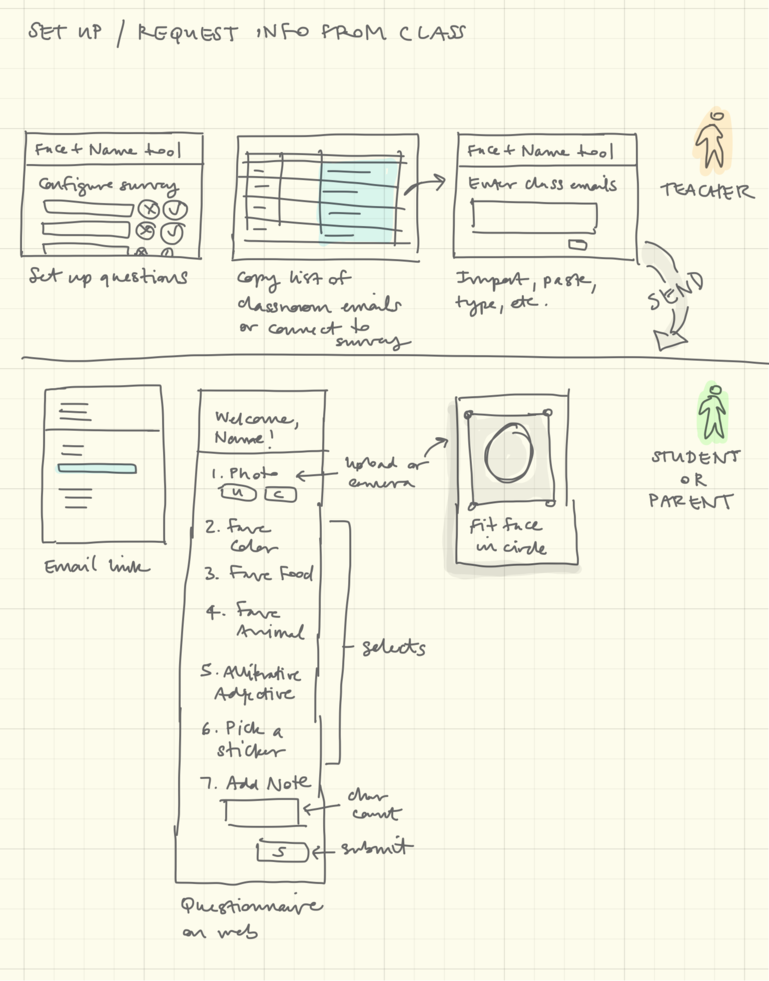 SET UP / REQUEST INFO FROM CLASS
Face + Name tool
Configure survey
Set up questions
Copy list of
classroom emails
or connect to
survey
Face + Name tool
Enter class emails
Import, paste,
type, etc.
TEACHER
SEND
Email link
Welcome,
Name!
1. Photo
U C
2. Fave
Color
3. Fave Food
4. Fave
Animal
5. Alliterative
Adjective
6. Pick a
sticker
7. Add Note
S
Questionnaire
on web
upload or
camera
selects
char
count
submit
Fit face
in circle
STUDENT
OR
PARENT